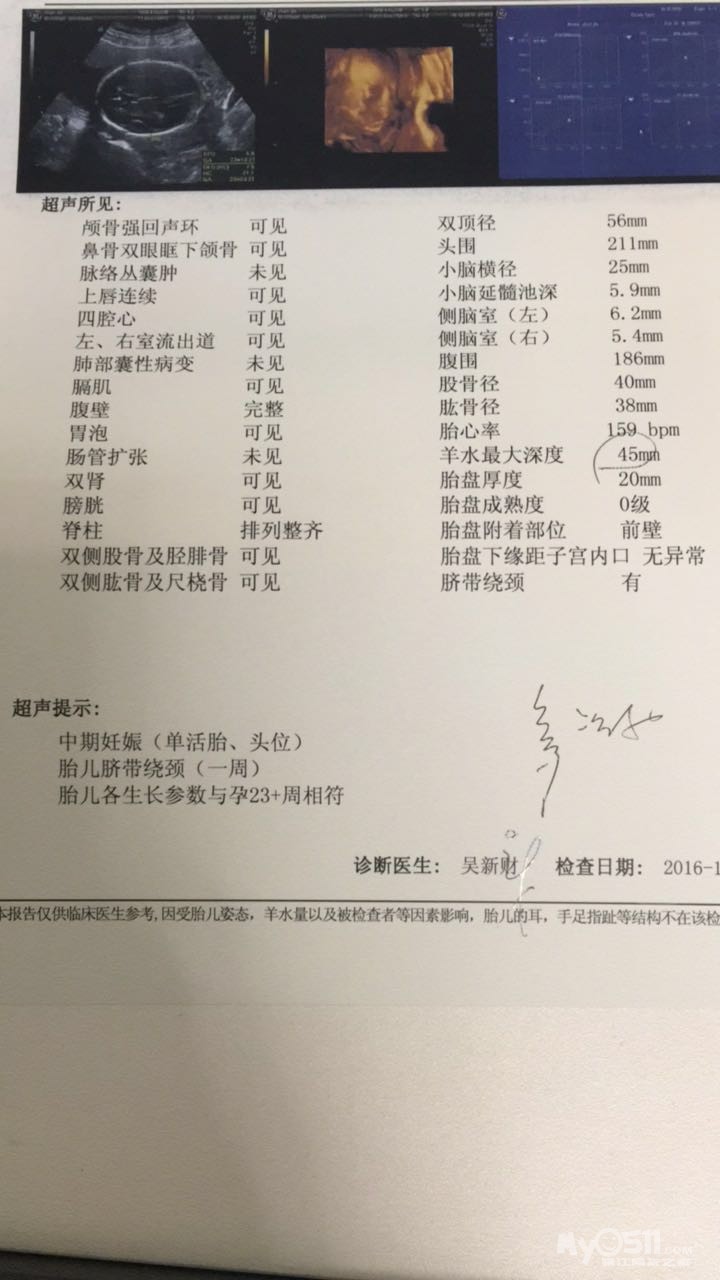 超声所见:
颅骨强回声环 可见 双顶径 56mm
鼻骨双眼眶下颌骨 可见 头围 211mm
脉络丛囊肿 未见 小脑横径 25mm
上唇连续 可见 小脑延髓池深 5.9mm
四腔心 可见 侧脑室（左） 6.2mm
左、右室流出道 可见 侧脑室（右） 5.4mm
肺部囊性病变 未见 腹围 186mm
膈肌 可见 股骨径 40mm
腹壁 完整 肱骨径 38mm
胃泡 可见 胎心率 159 bpm
肠管扩张 未见 羊水最大深度 45mm
双肾 可见 胎盘厚度 20mm
膀胱 可见 胎盘成熟度 0级
脊柱 排列整齐 胎盘附着部位 前壁
双侧股骨及胫腓骨 可见 胎盘下缘距子宫内口 无异常
双侧肱骨及尺桡骨 可见 脐带绕颈 有
超声提示:
中期妊娠（单活胎、头位）
胎儿脐带绕颈（一周）
胎儿各生长参数与孕23+周相符
诊断医生: 吴新财 检查日期: 2016-1
本报告仅供临床医生参考,因受胎儿姿态，羊水量以及被检查者等因素影响，胎儿的耳，手足指趾等结构不在该检
My0511.COM